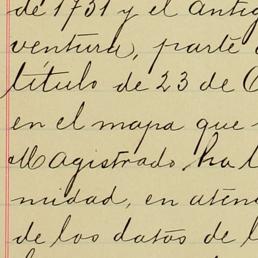 de 1731 y el Antig
ventura, parte
título de 23 de
en el mapa que
Magistrado ha l
midad, en aten
de los datos de l